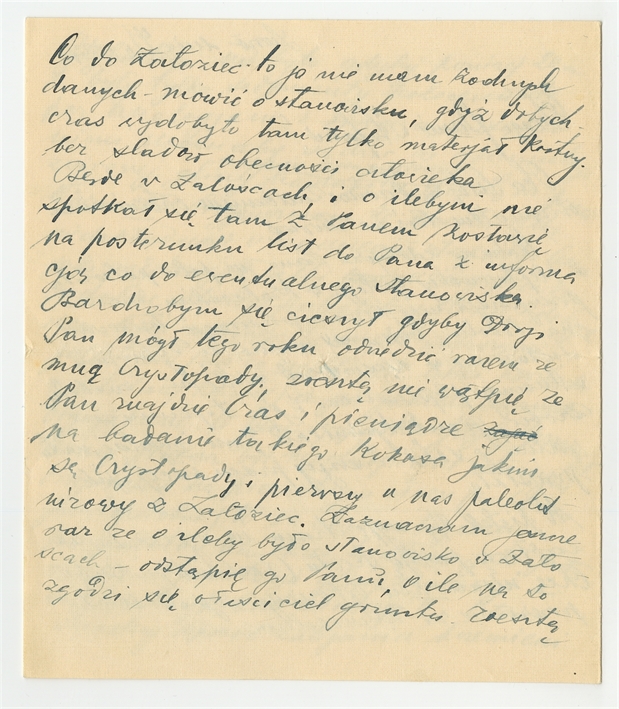 Co do Załoziec - to ja nie mam żadnych
danych - mówić o stanowisku, gdyż dotych
czas wydobyto tam tylko materjał kostny.
bez śladów obecności człowieka
Będę w Załoścach, i o ilebym nie
spotkał się tam z Panem zostawię
na posterunku list do Pana z informa
cją co do ewentualnego stanowiska.
Bardzobym się cieszył gdyby Drogi
Pan mógł tego roku odwiedzić razem ze
mną Czystopady, zresztą nie wątpię, że
Pan znajdzie czas i pieniądze
na badanie takiego kokosa jakim
są Czystopady i pierwszy u nas paleolit
nizowy z Załoziec. Zaznaczam jeszcze
raz że o ileby było stanowisko w Zało
ścach - odstąpię go Panu, o ile na to
zgodzi się właściciel gruntu. Zresztą